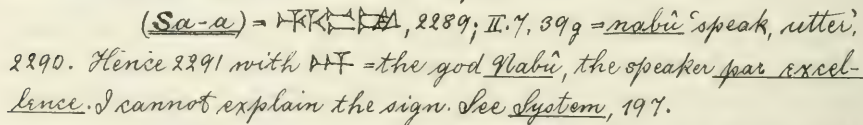 (Sa-a) = , 2289; II. 7, 39g = nabû 'speak, utter',
2290. Hence 2291 with = the god Nabû, the speaker par excel-
lence. I cannot explain the sign. See System, 197.